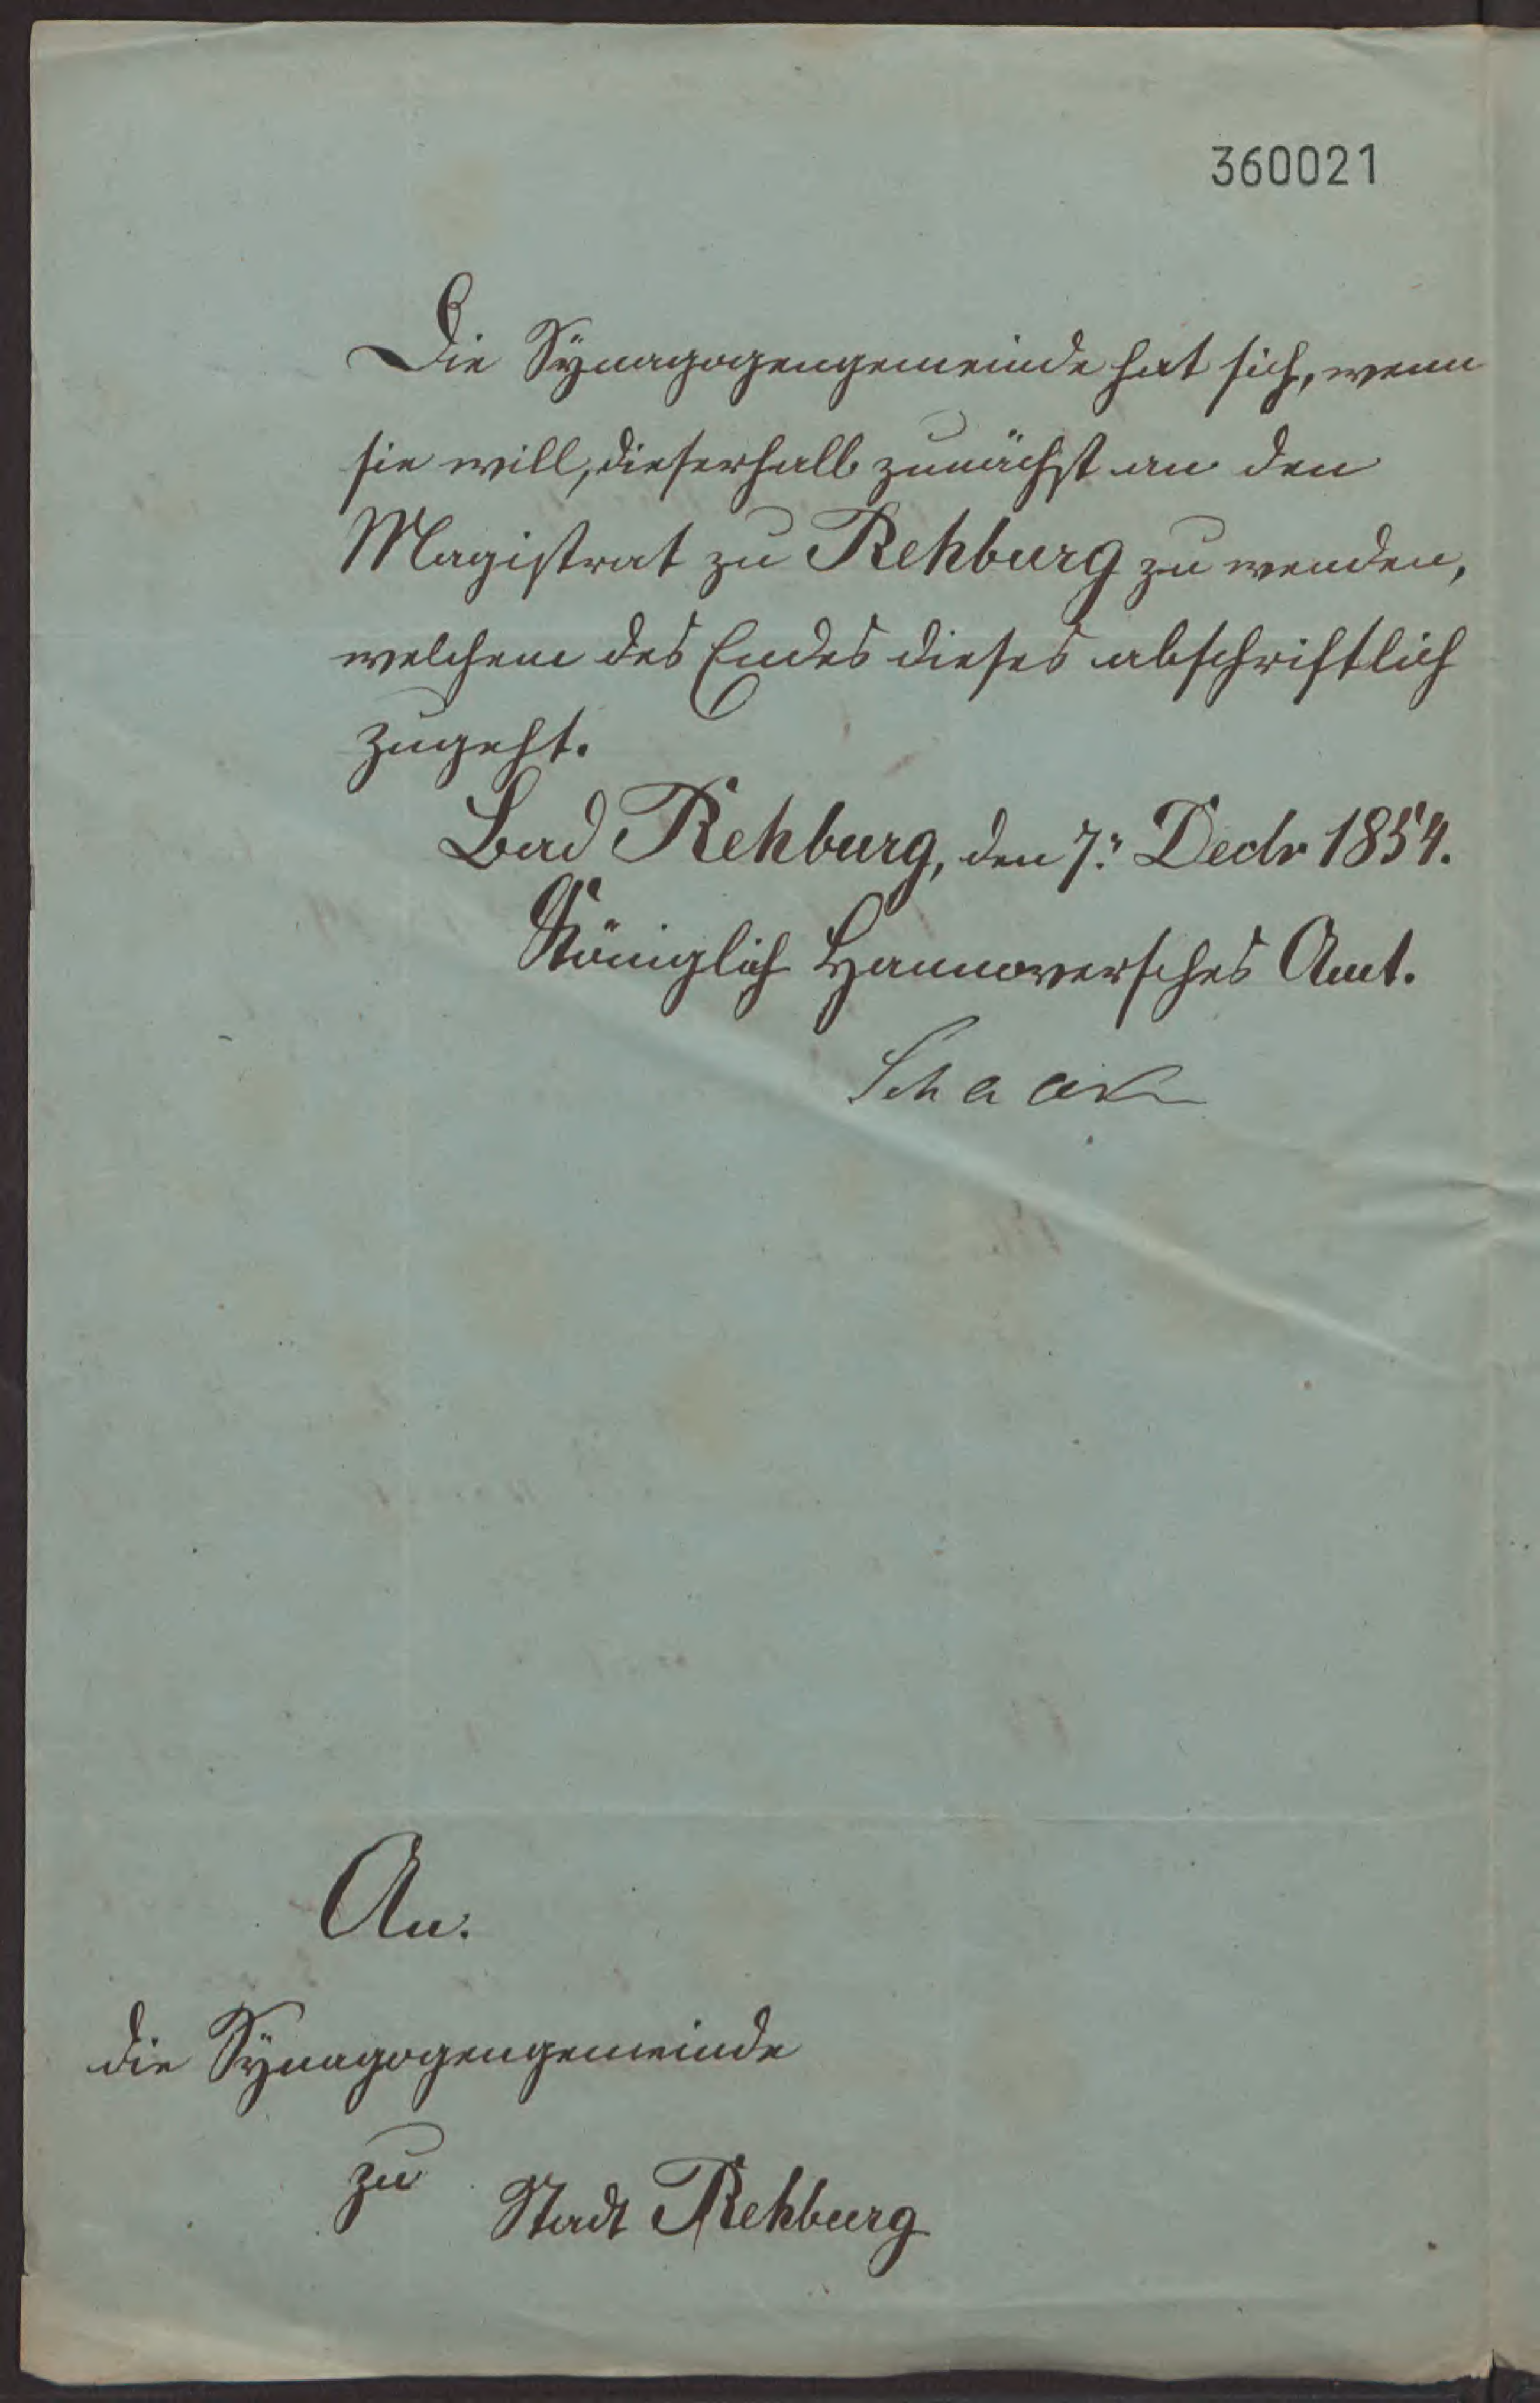 360021
Die Synagogengemeinde hat sich, wenn
sie will, dieserhalb zunächst an den
Magistrat zu Rehburg zu wenden,
welchem des Endes dieses abschriftlich
zugeht.
Bad Rehburg, den 7. Decbr 1854.
Königlich Hannoversches Amt.
Schaak
An.
die Synagogengemeinde
zu
Stadt Rehburg